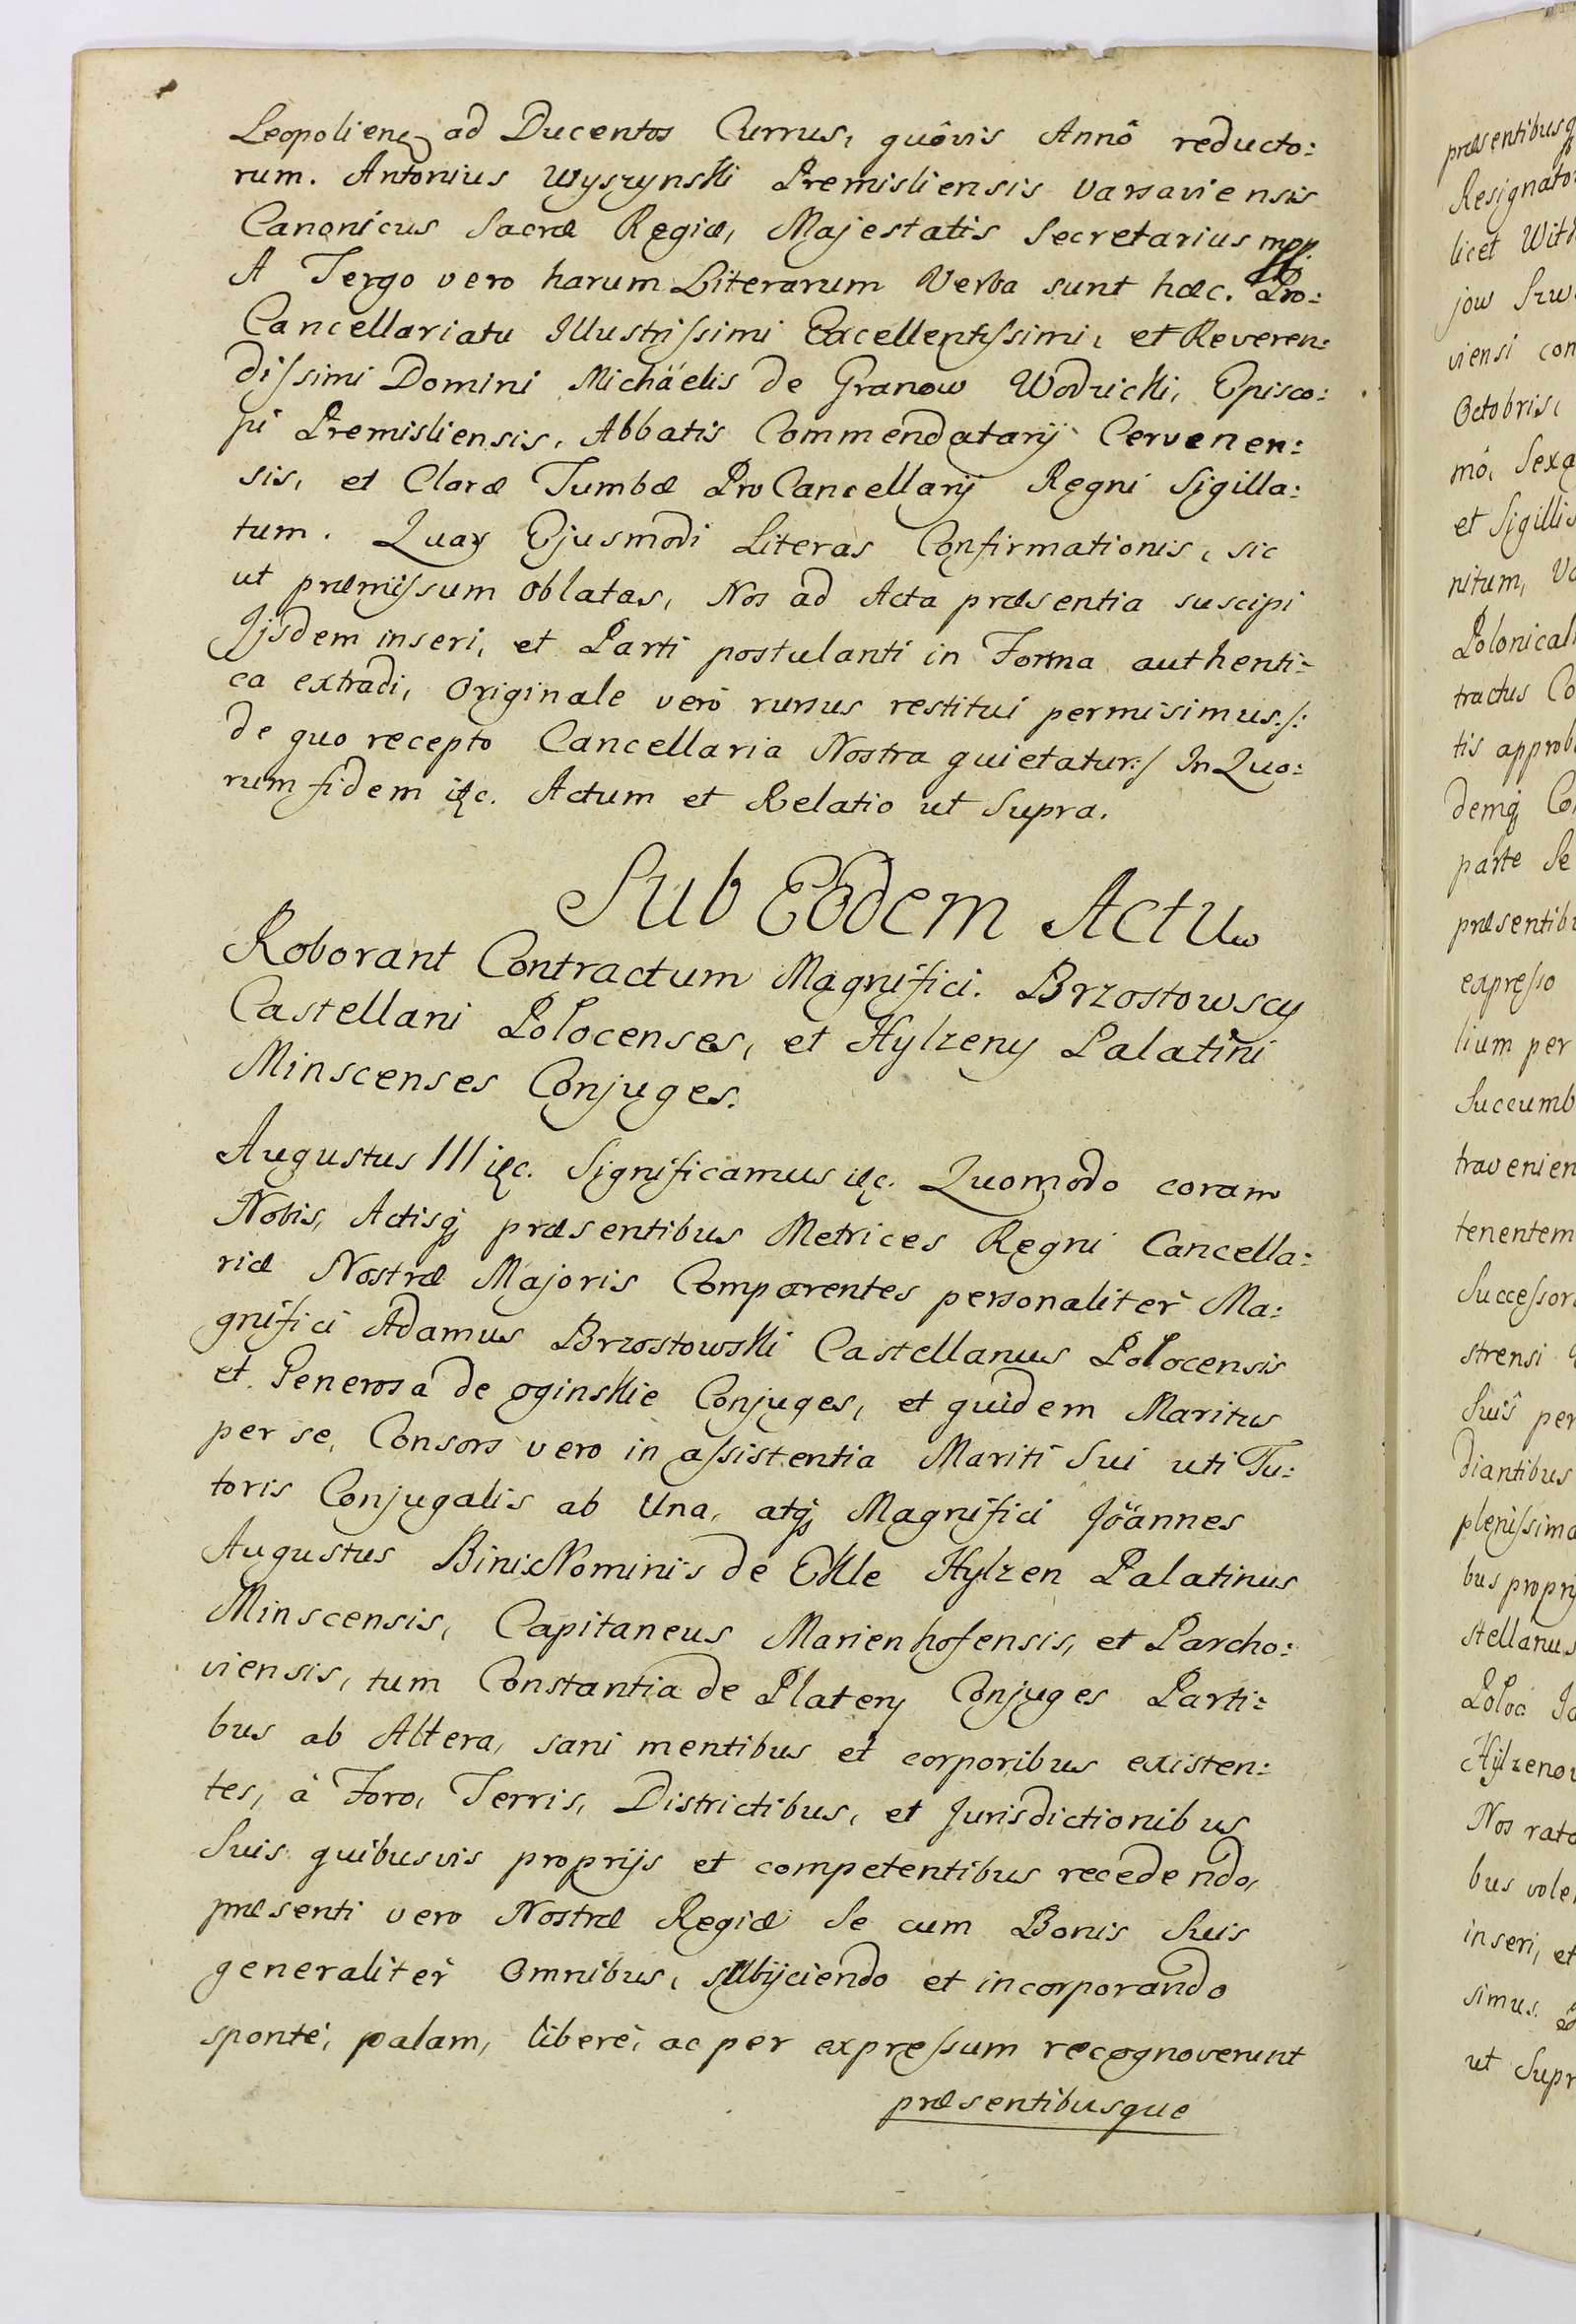 Leopolien ad Ducentos Currus, quôvis Annô reducto:
rum. Antonius Wyszynski Premisliensis Varsaviensis
Canonicus Sacræ Regiæ, Majestatis Secretarius mpp
A Tergo vero harum Literarum Verba sunt hæc. Pro:
Cancellariatu Illustrissimi Excellentissimi, et Reveren:
dissimi Domini Michäelis de Granow Wodzicki, Episco:
pi Premisliensis, Abbatis Commendatarij Cervenen:
sis, et Claræ Tumbæ ProCancellarij Regni Sigilla:
tum. Quas Ejusmodi Literas Confirmationis, sic
ut præmissum oblatas, Nos ad Acta præsentia suscipi
Ijsdem inseri, et Parti postulanti in Forma authenti=
ca extradi, Originale verò rursus restitui permisimus./:
de quo recepto Cancellaria Nostra quietatur:/ In Quo:
rum fidem etc. Actum et Relatio ut Supra.
Sub Eôdem Actu
Roborant Contractum Magnifici. Brzostowscy
Castellani Polocenses, et Hylzeny Palatini
Minscenses Conjuges.
Augustus III etc. Significamus etc. Quomodo coram
Nobis, Actisq præsentibus Metrices Regni Cancella:
riæ Nostræ Majoris Comparentes personaliter Ma:
gnifici Adamus Brzostowski Castellanus Polocensis
et Generosa de Oginskie Conjuges, et quidem Maritus
per se, Consors vero in assistentia Mariti Sui uti Tu:
toris Conjugalis ab Una, atq Magnifici Jöannes
Augustus Binis Nominis de Ekle Hylzen Palatinus
Minscensis, Capitaneus Marienhofensis, et Parcho:
viensis, tum Constantia de Platery Conjuges Parti=
bus ab Altera, sani mentibus et corporibus existen:
tes, à Foro, Terris, Districtibus, et Jurisdictionibus
Suis quibusvis proprijs et competentibus recedendo,
præsenti vero Nostræ Regiæ Se cum Bonis Suis
generaliter Omnibus, subijciendo et incorporando
sponte, palam, liberè, ac per expressum recognoverunt
præsentibusque
præsentibusq
Resignato
licet Wit
jow Szw
viensi con
Octobris,
mô, Sexa
et Sigillis
nitum, Va
Polonical
tractus Co
tis approb
demq Co
parte Se
præsentib
expresso
lium per
Succumb
travenien
tenentem
Successor
strensi
Suis per
diantibus
plenissima
bus propry
stellanus
Poloc
Hylzeno
Nos rata
bus vole
inseri, et
simus.
ut Supr